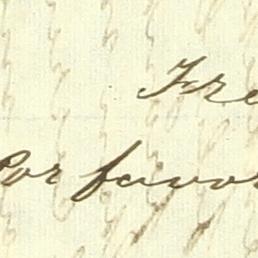 Fre
Por favor